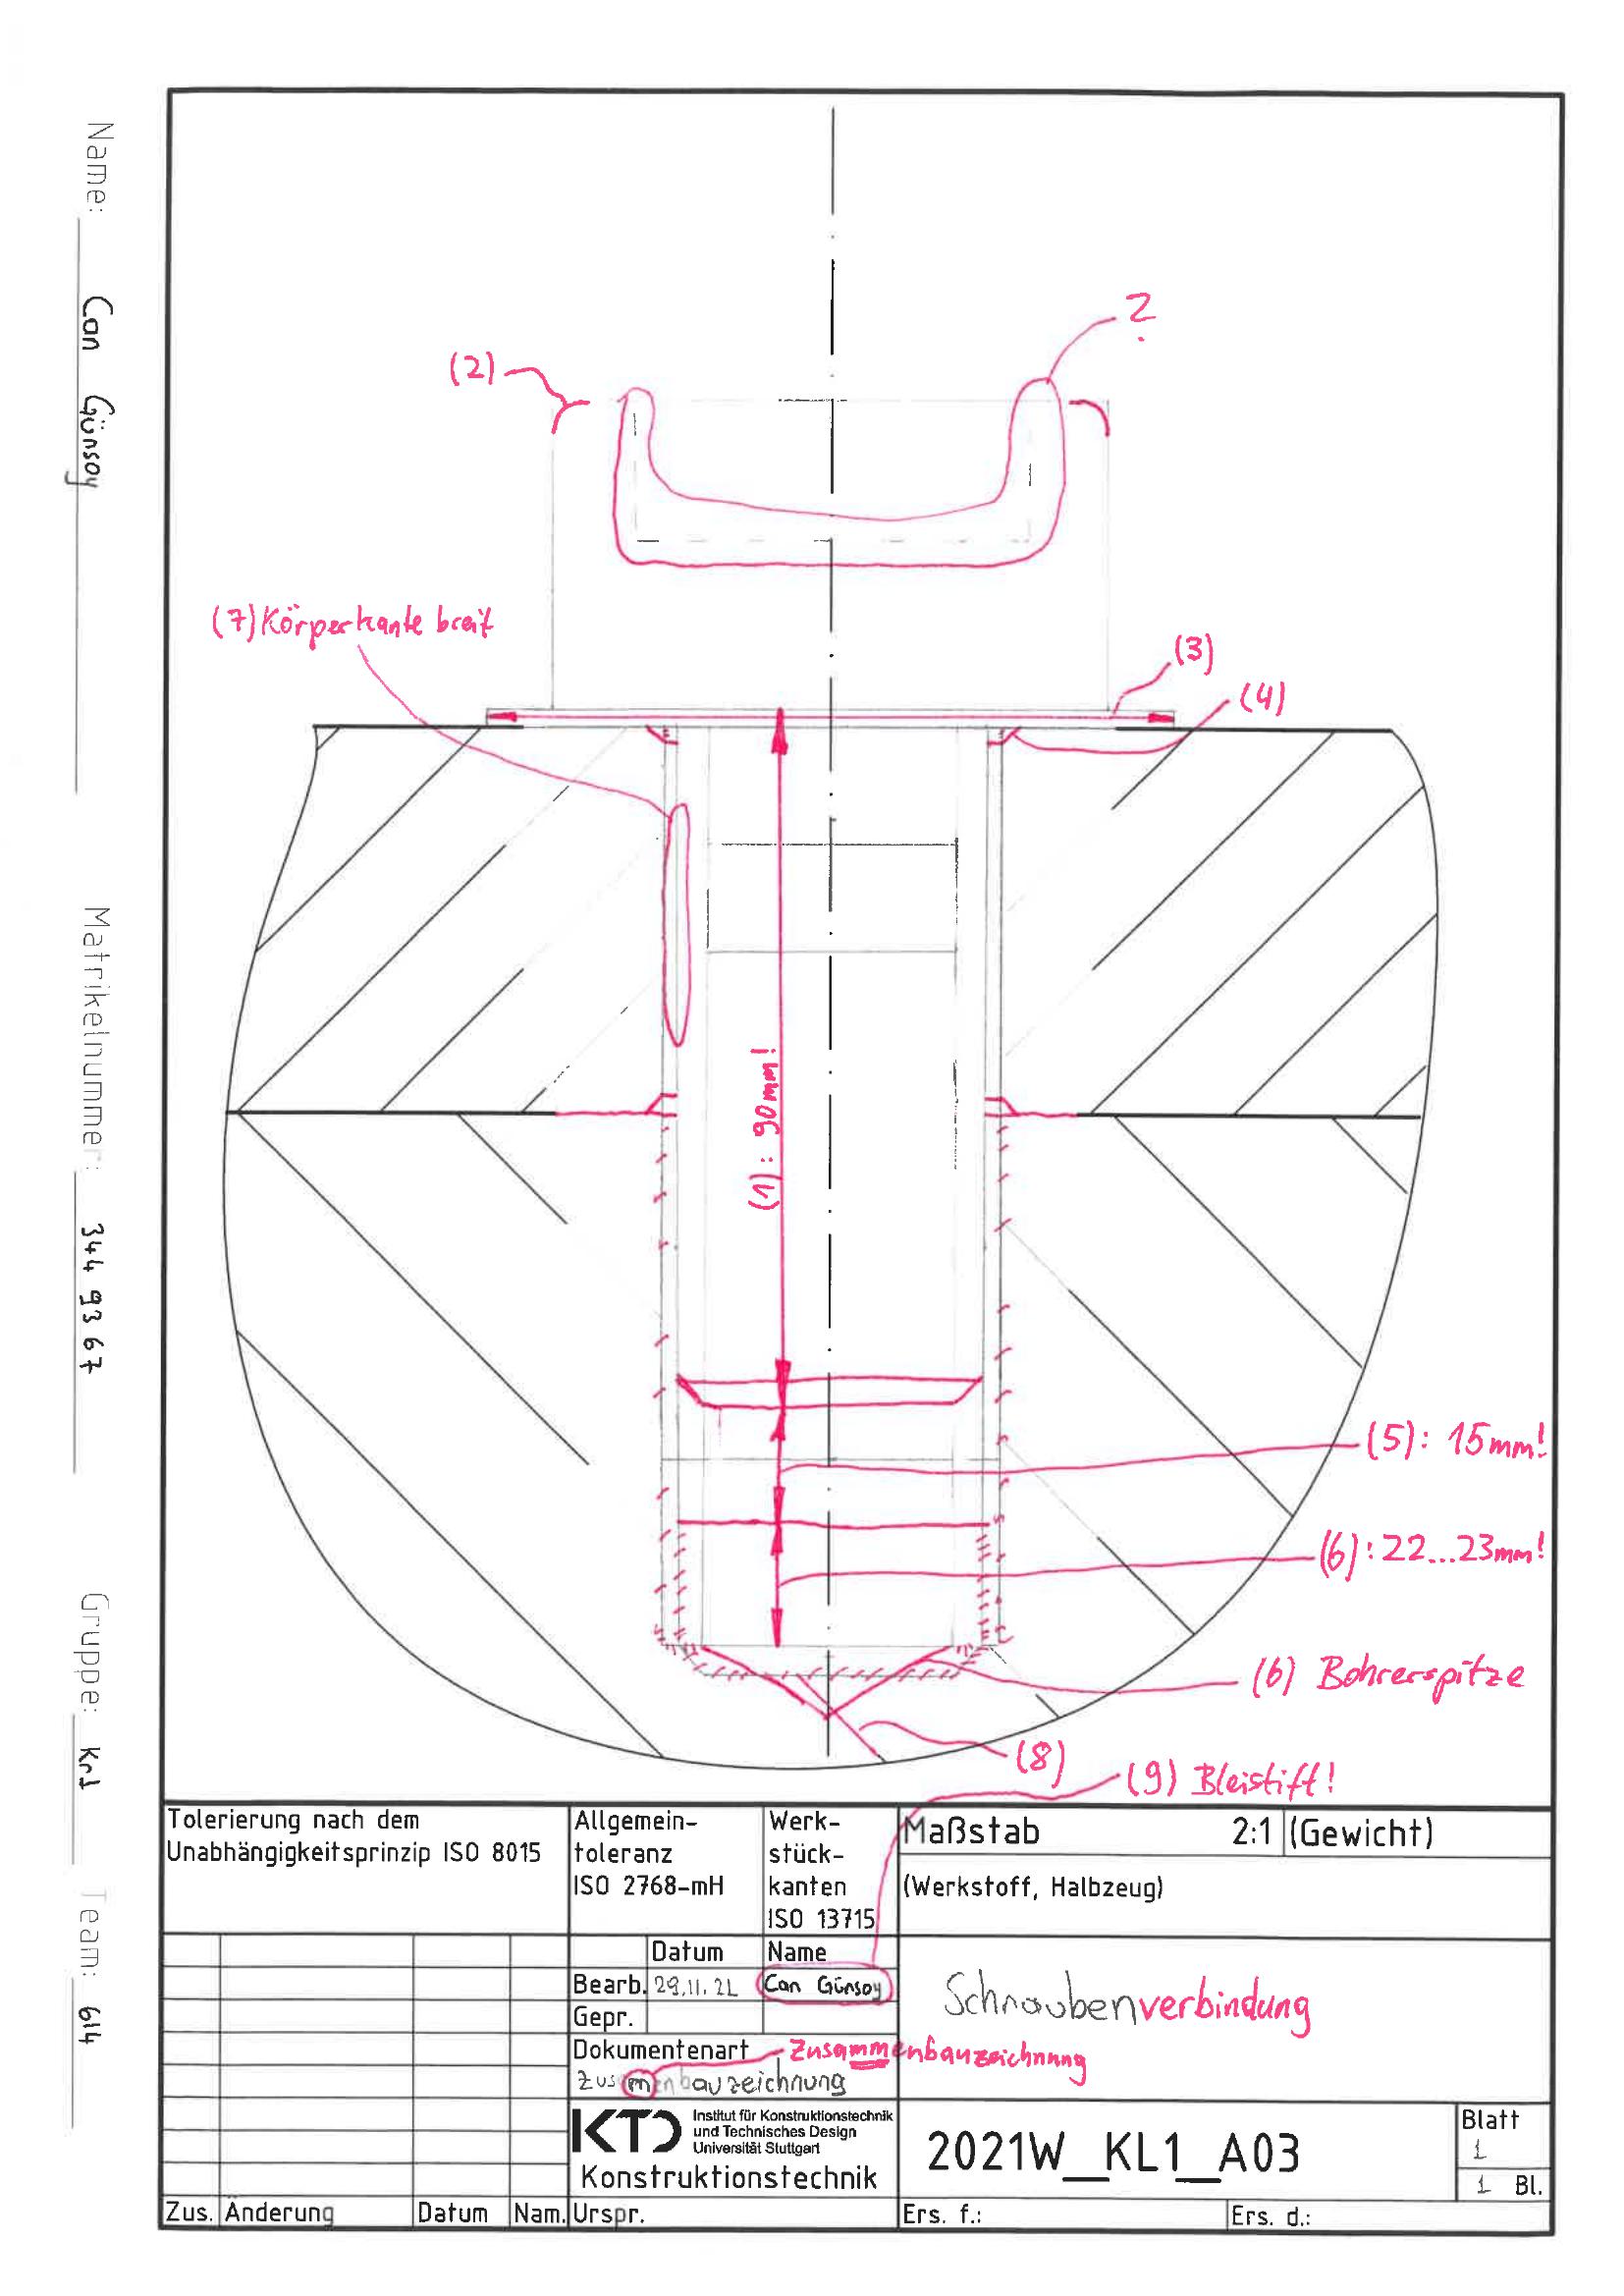 Name: Can Günsoy
Matrikelnummer: 344 93 67
Gruppe: kr1
Team: 614
?
(2)
(7) Körperkante breit
(3)
(4)
(1): 90mm!
(5): 15mm!
(6): 22...23mm!
(6) Bohrerspitze
(8)
(9) Bleistift!
Tolerierung nach dem
Unabhängigkeitsprinzip ISO 8015
Allgemein-
toleranz
ISO 2768-mH
Werk-
stück-
kanten
ISO 13715
Maßstab 2:1 (Gewicht)
(Werkstoff, Halbzeug)
Datum Name
Bearb. 29.11.21 Can Günsoy
Gepr.
Schraubenverbindung
Dokumentenart Zusammenbauzeichnung
Zusamenbauzeichnung
KTD Institut für Konstruktionstechnik
und Technisches Design
Universität Stuttgart
Konstruktionstechnik
2021W_KL1_A03
Blatt
1
1 Bl.
Zus. Änderung Datum Nam. Urspr. Ers. f.: Ers. d.: